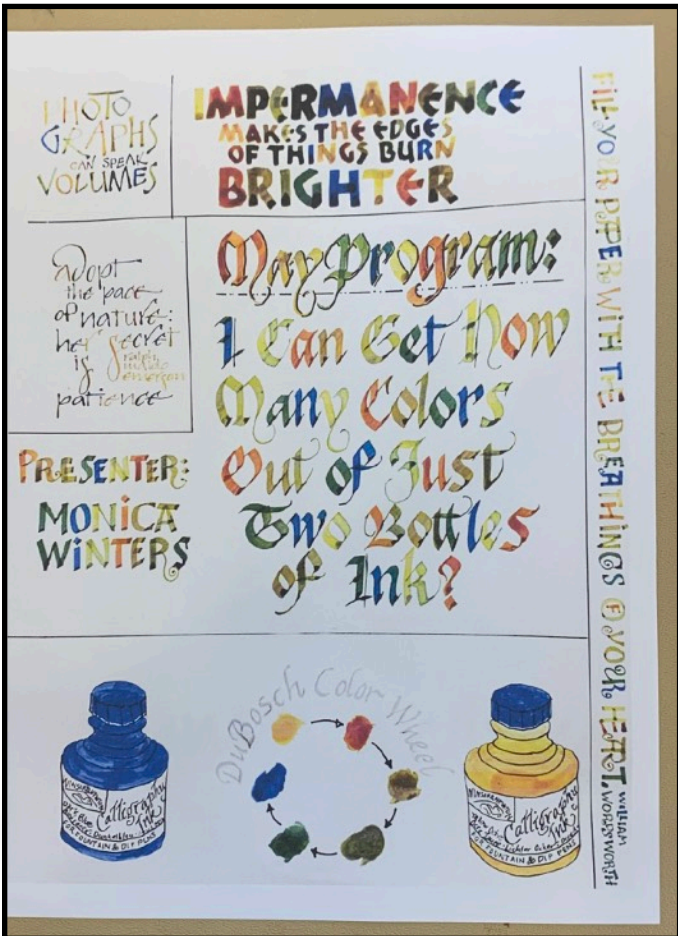 PHOTO
GRAPHS
CAN SPEAK
VOLUMES
IMPERMANENCE
MAKES THE EDGES
OF THINGS BURN
BRIGHTER
adopt
the pace
of nature:
her secret
is ralph
waldo
emerson
patience
May Program:
I Can Get How
Many Colors
Out of Just
Two Bottles
of Ink?
PRESENTER:
MONICA
WINTERS
DuBosch Color Wheel
Calligraphy
Ink
FOUNTAIN & DIP PENS
Calligraphy
Ink
FOUNTAIN & DIP PENS
FILL YOUR PAPER WITH THE BREATHINGS OF YOUR HEART. WILLIAM
WORDSWORTH